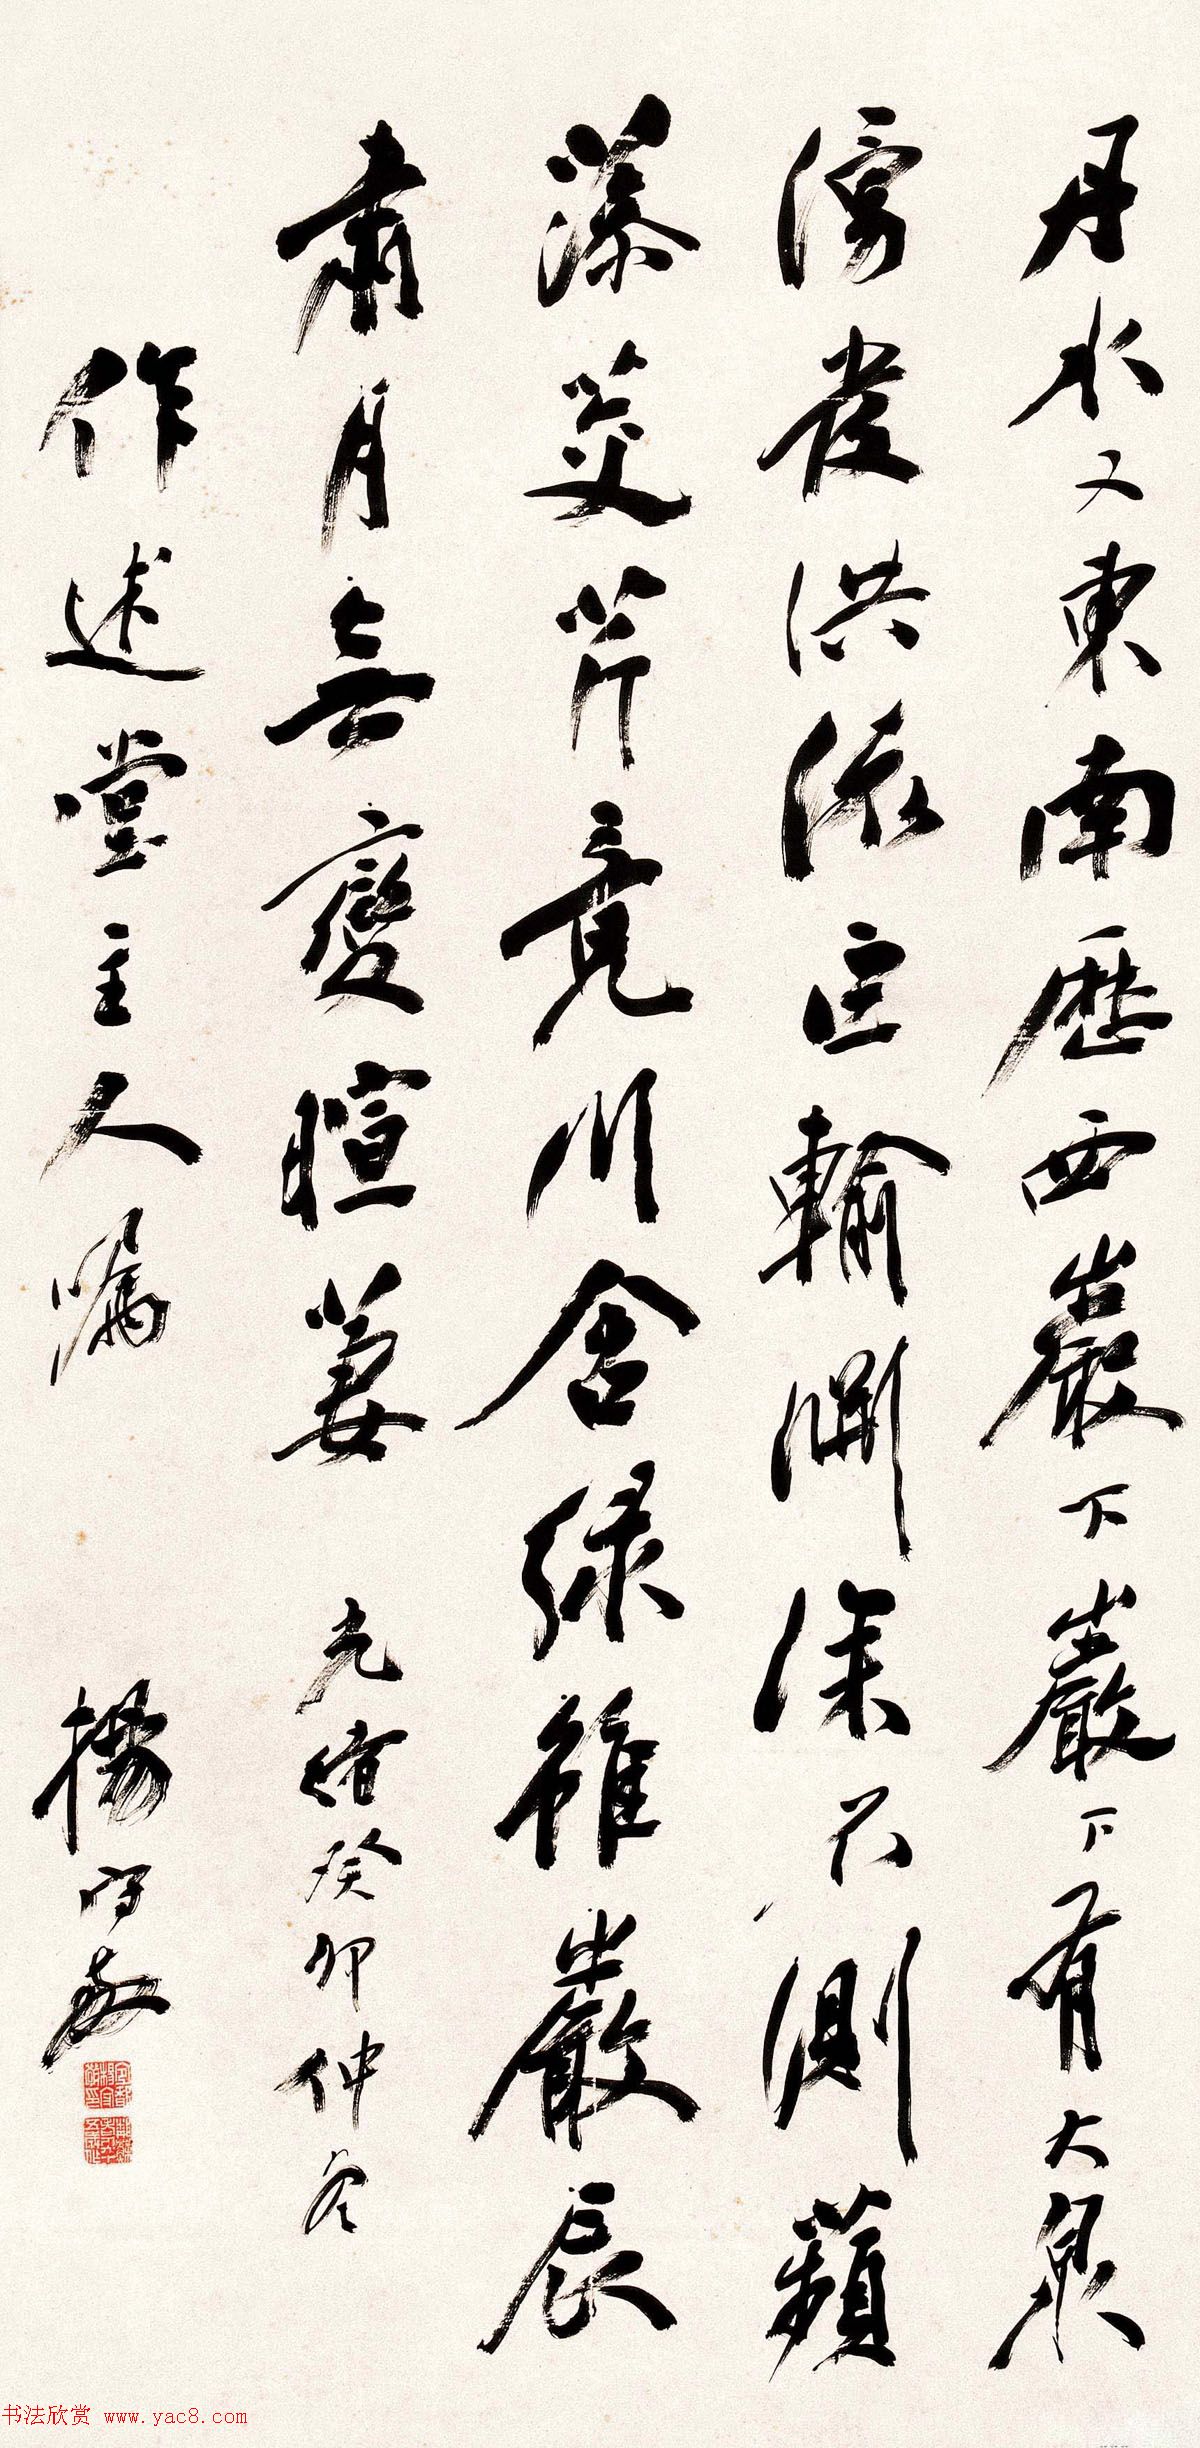 丹水又東南歷西巖下巖下有大泉
湧發洪流巨輸淵深不測蘋
藻茭芹竟川含綠雖嚴辰
肅月無變暄萋 光緒癸卯仲冬
作述堂主人囑 楊守敬
书法欣赏 www.yac8.com